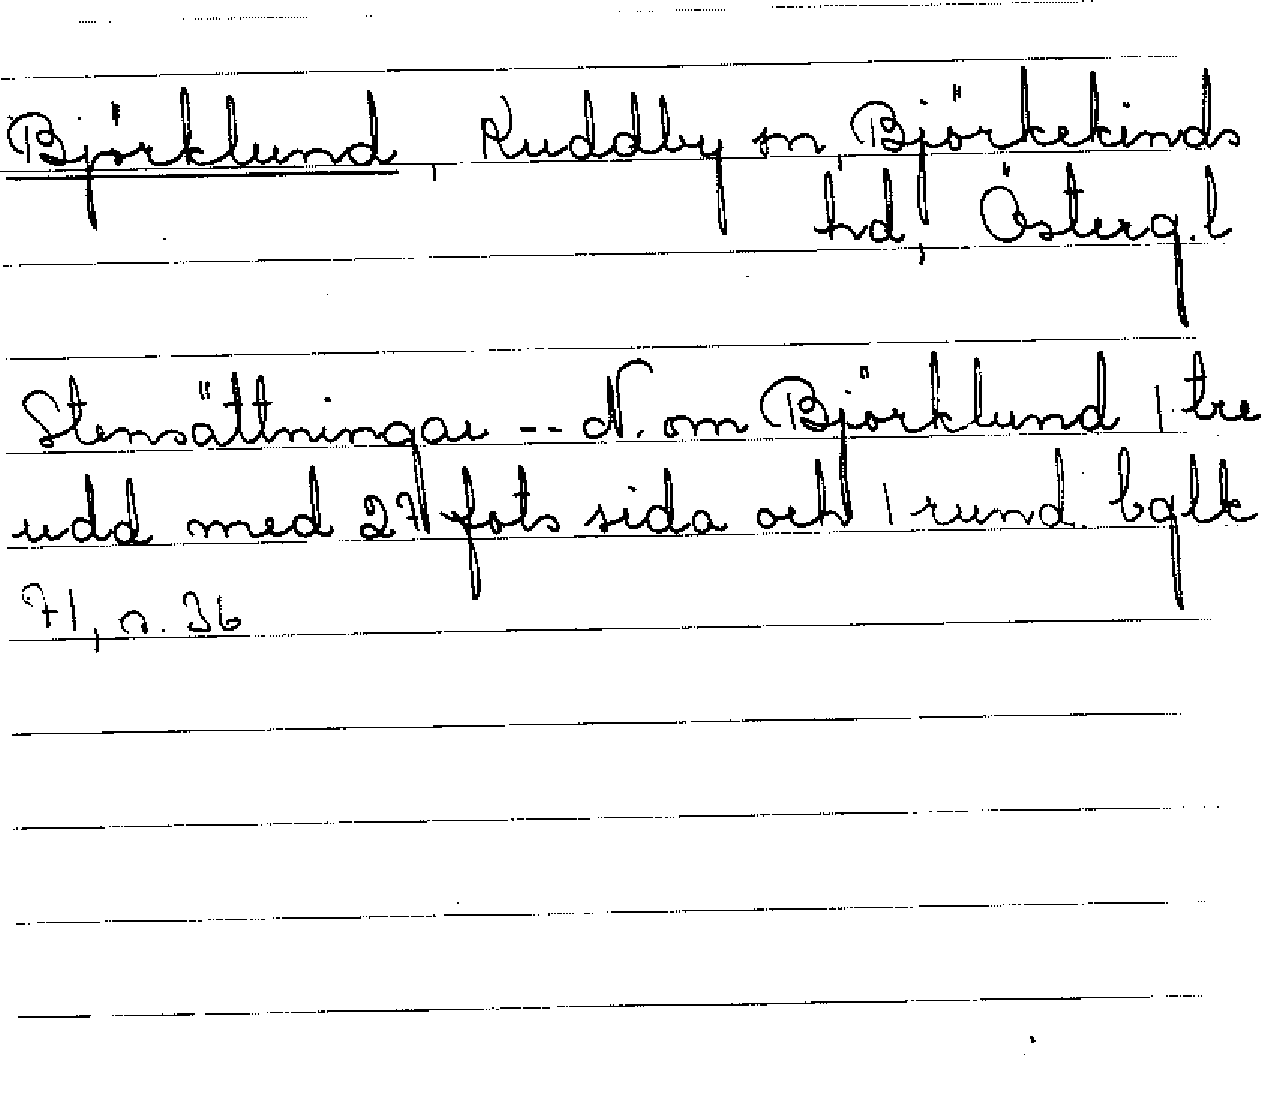 Björklund, Kuddby sn, Björkekinds
hd, Österg.l
Stensättningar -- N. om Björklund 1 tre
udd med 27 fots sida och 1 rund. bglk
71, s. 36